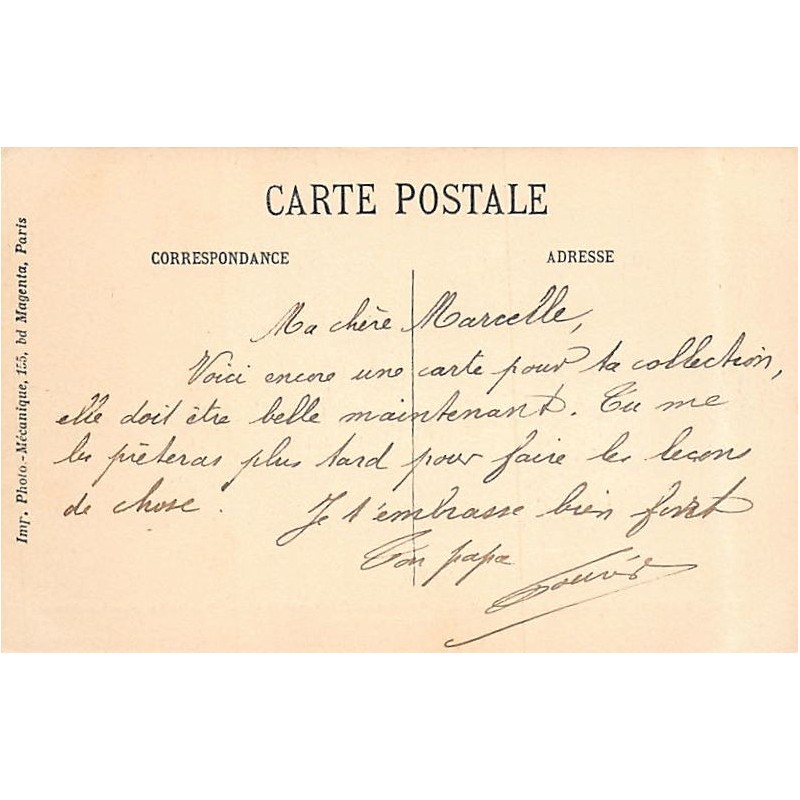 CARTE POSTALE
CORRESPONDANCE
ADRESSE
Ma chère Marcelle,
Voici encore une carte pour ta collection,
elle doit être belle maintenant. Tu me
les prêteras plus tard pour faire les leçons
de chose. Je t'embrasse bien fort
Ton papa
Imp. Photo-Mécanique, 155, bd Magenta, Paris